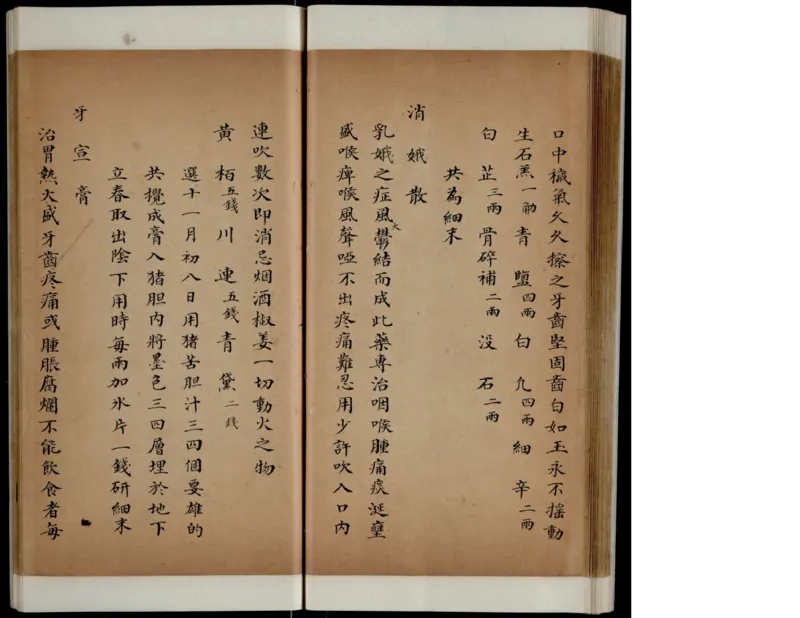 口中穢氣久久擦之牙齒堅固齒白如玉永不搖動
生石羔一觔青鹽四兩白凢四兩細辛二兩
白芷三兩骨碎補二兩没石二兩
共為細末
消蛾散
乳蛾之症風火鬱結而成此藥專治咽喉腫痛痰涎壅
盛喉痺喉風聲啞不出疼痛難忍用少許吹入口內
連吹數次即消忌烟酒椒姜一切動火之物
黃栢五錢川連五錢青黛二錢
選十一月初八日用猪苦胆汁三四個要雄的
共攪成膏入猪胆內將墨色三四層埋於地下
立春取出陰下用時每兩加氷片一錢研細末
牙宣膏
治胃熱火盛牙齒疼痛或腫脹腐爛不能飲食者每